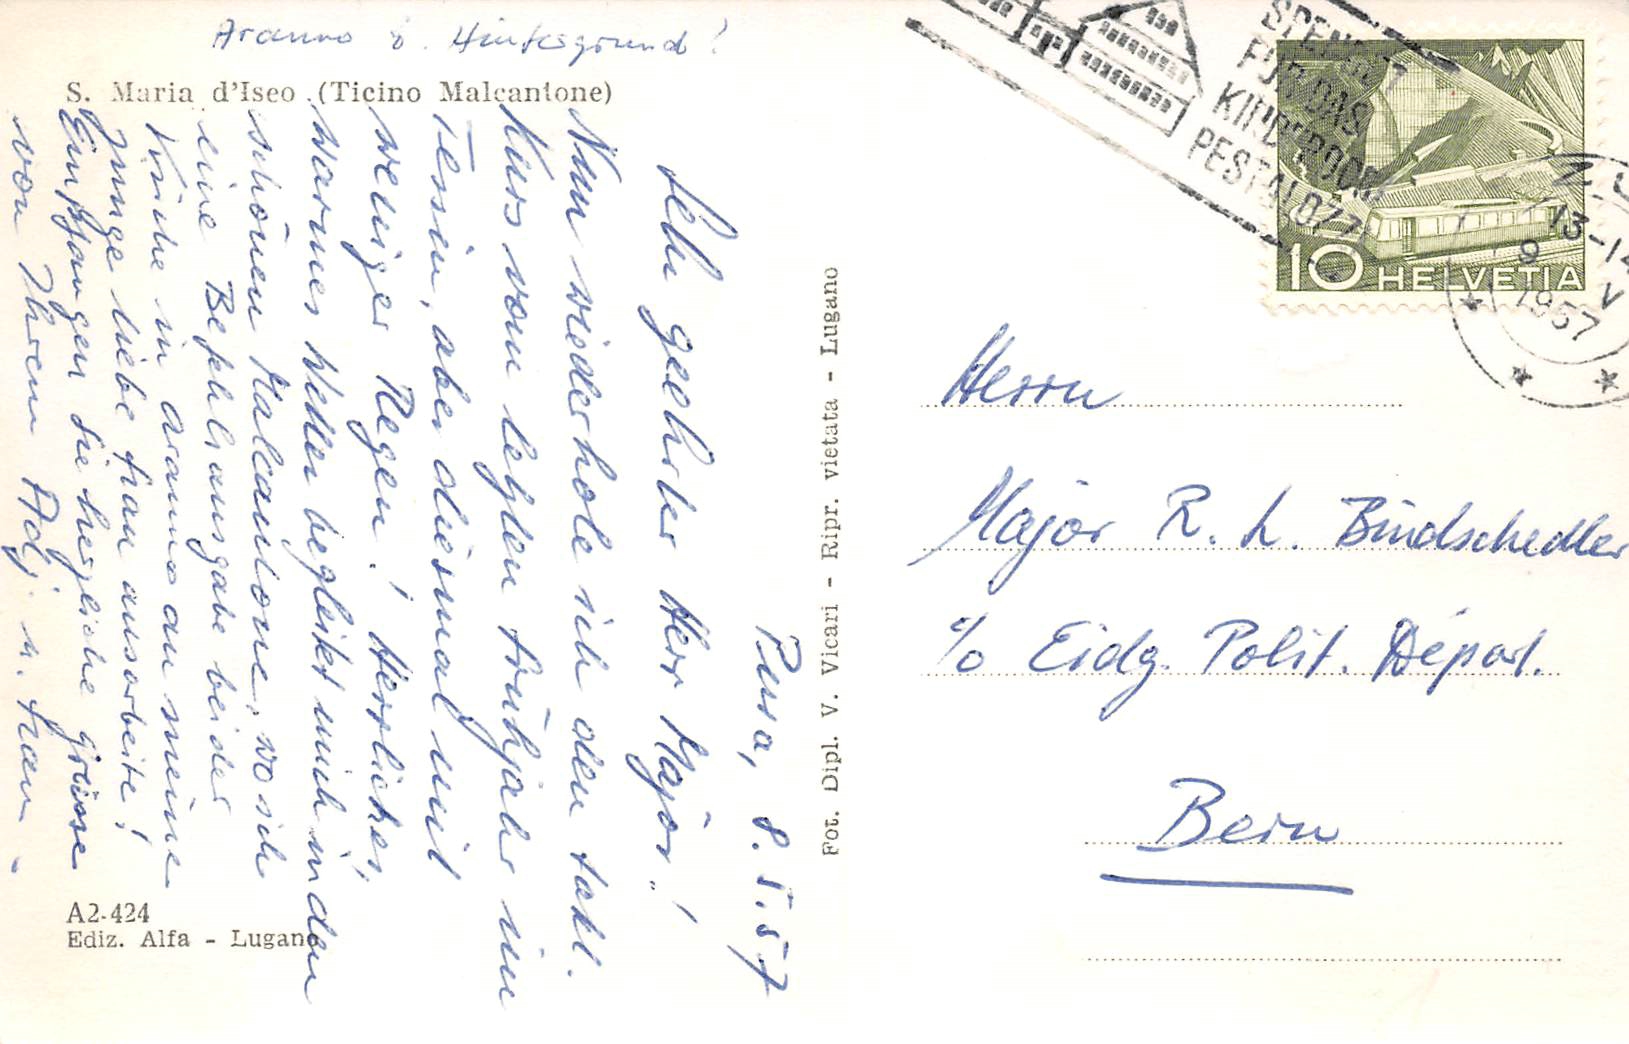 Aranno i. Hintergrund!
S. Maria d'Iseo (Ticino Malcantone)
Pura, 8. 5. 57
Sehr geehrter Herr Major!
Nun wiederhole ich den takt.
Kurs vom letzten Frühjahr im
Tessin, aber diesmal mit
weniger Regen! Herrliches,
warmes Wetter begleitet mich in den
schönen Malcantone, wo ich
eine Befehlsausgabe bei der
Kirche in Aranno an meine
junge liebe Frau ausarbeite!
Empfangen Sie herzliche Grüsse
von Ihrem Adj. u. Frau
A2-424
Ediz. Alfa - Lugano
Fot. Dipl. V. Vicari - Ripr. vietata - Lugano
SPENDET
FÜR DAS
KINDERDORF
PESTALOZZI
10 HELVETIA
13-14
9 V
1957
Herrn
Major R. L. Bindschedler
c/o Eidg. Polit. Départ.
Bern